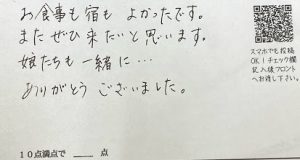 お食事も宿も よかったです。
またぜひ来たいと思います。
娘たちも一緒に…
ありがとう ございました。
スマホでも投稿
OK！チェック欄
記入後フロント
へお渡し下さい。
10点満点で 点